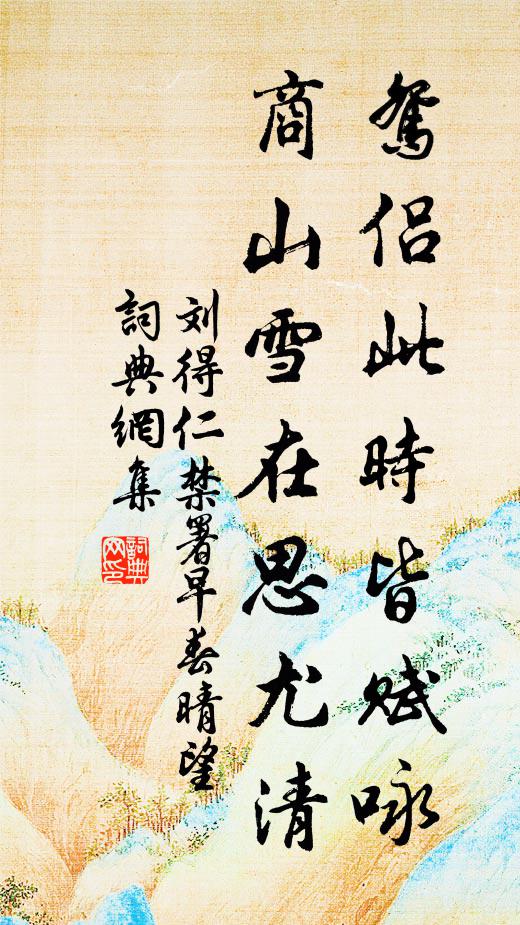 鴛侶此時皆賦咏
商山雪在思尤清
刘得仁禁署早春晴望
詞典網集
詞典
网印